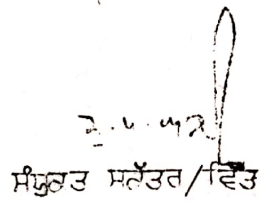 ਸੰਯੁਕਤ ਸਕੱਤਰ/ਵਿੱਤ